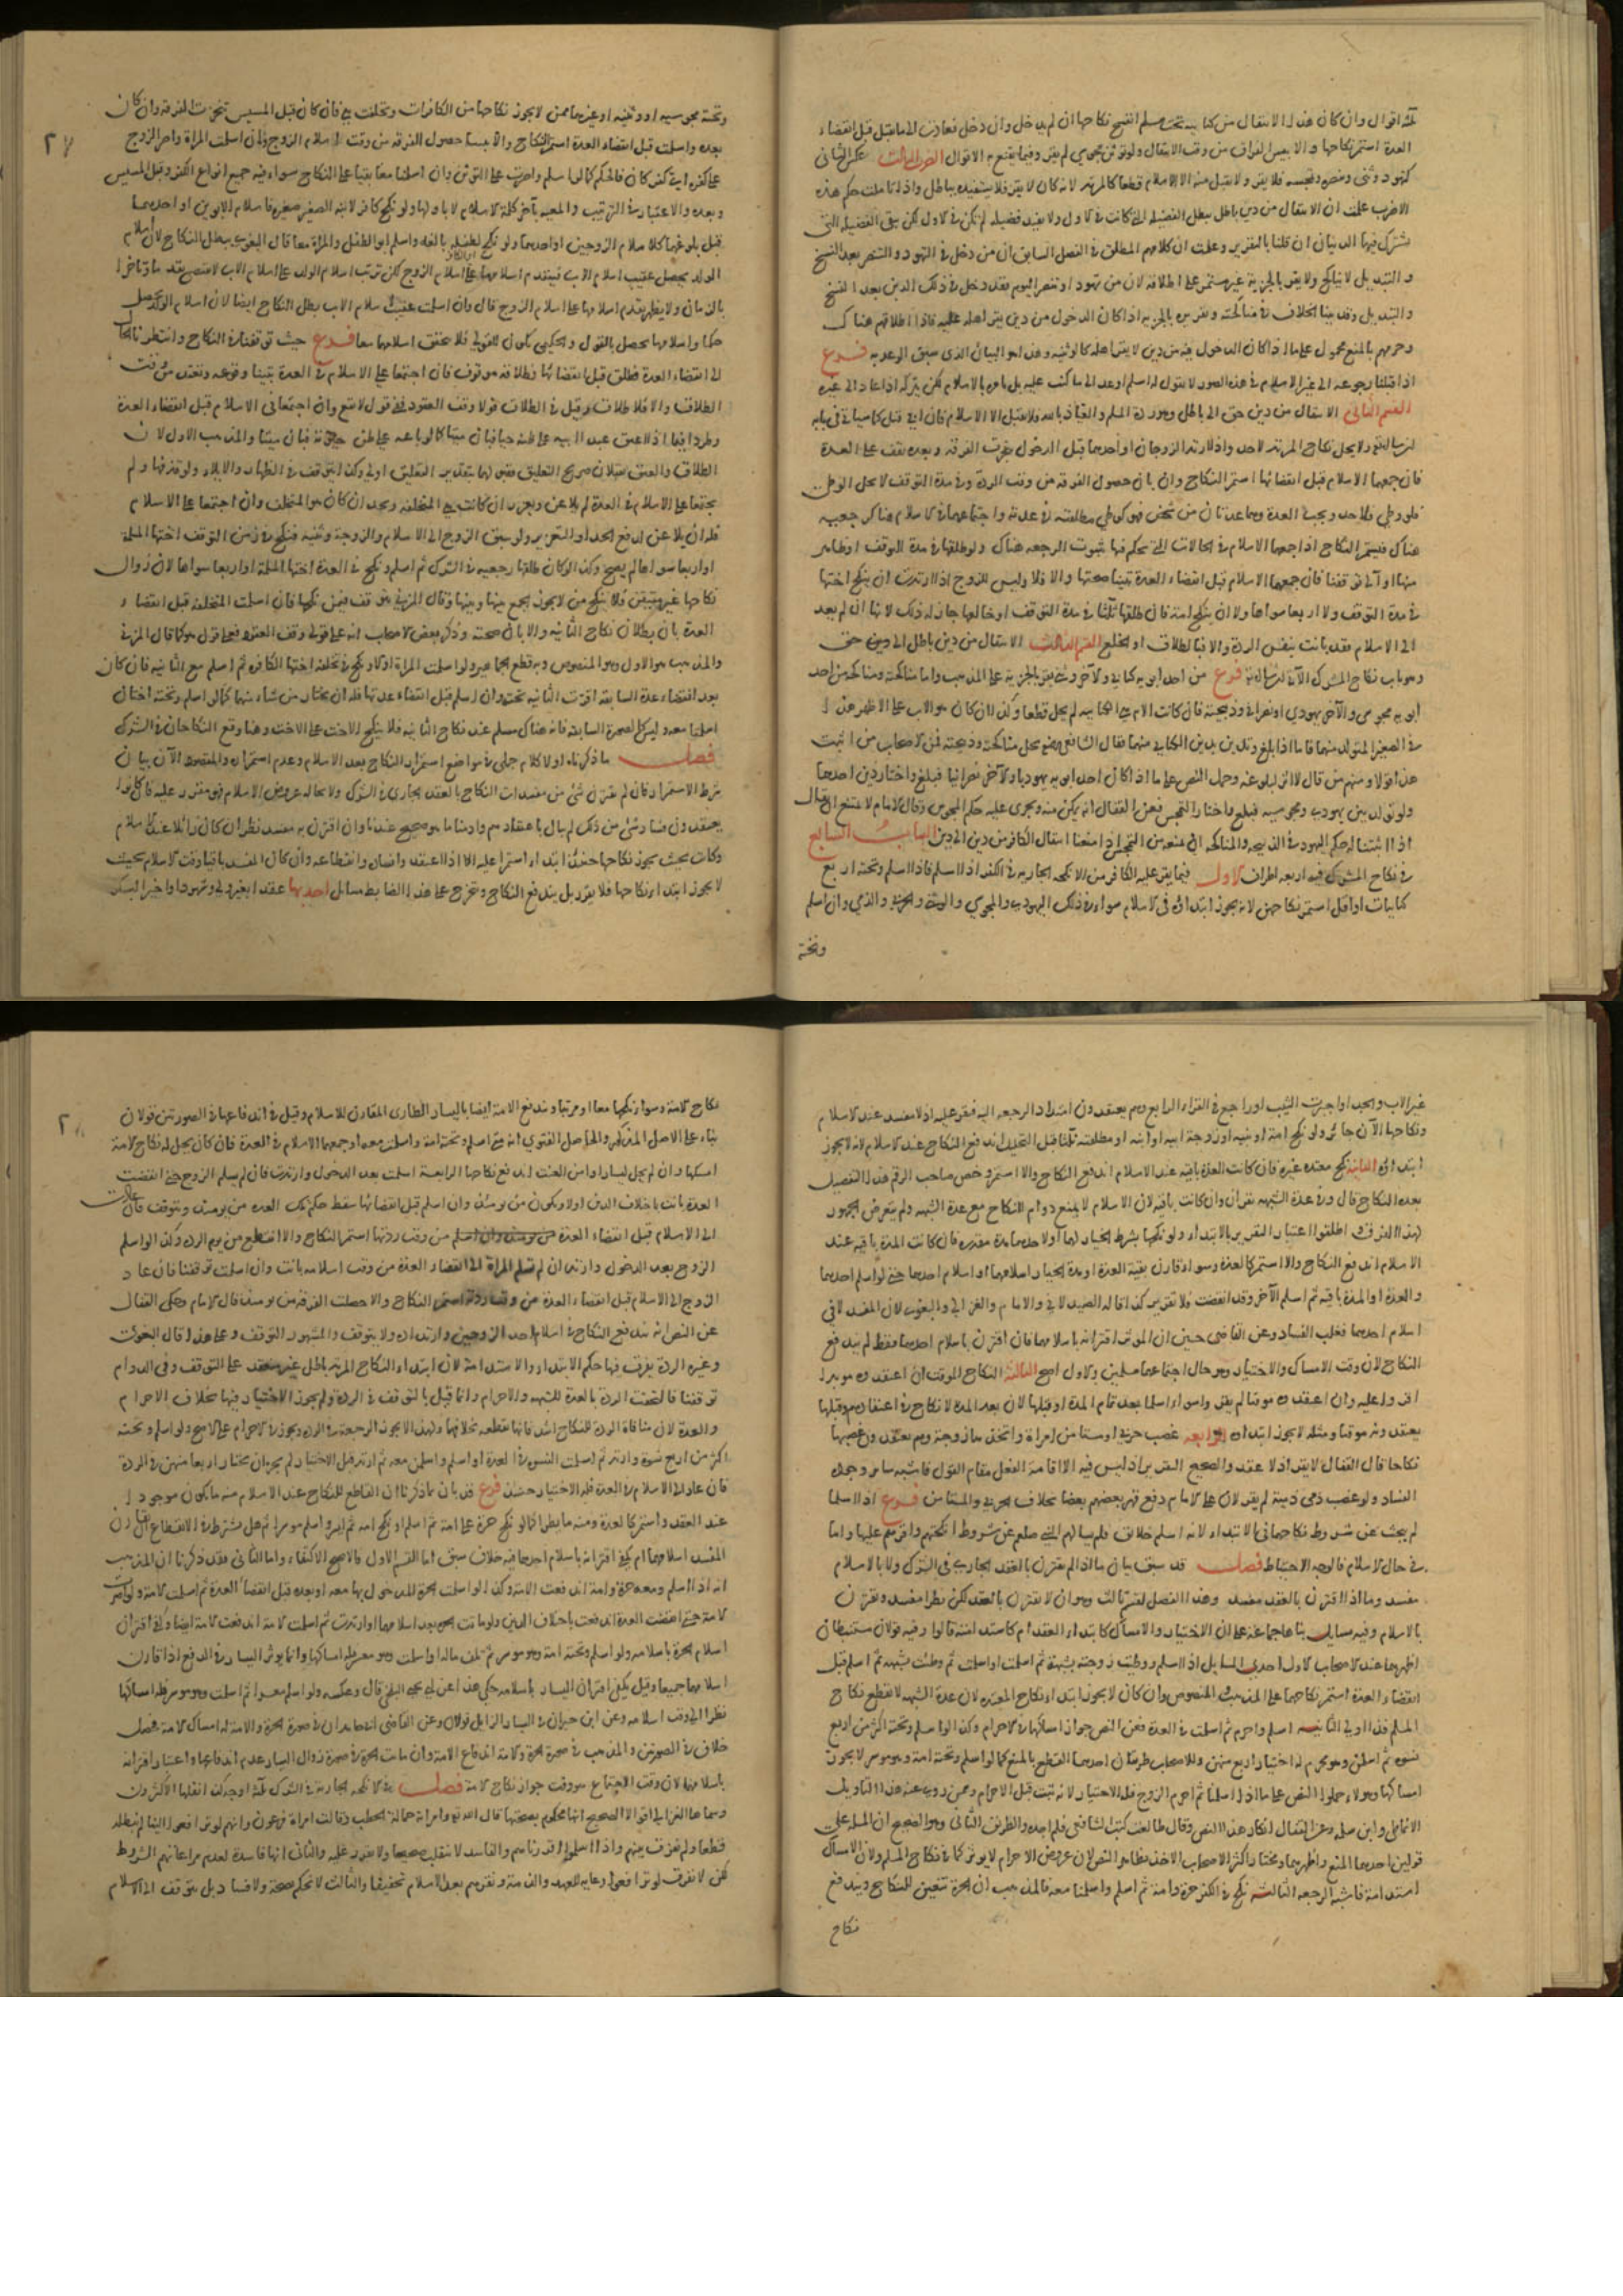 ثلثة اقوال وان كان هذا الانتقال من كتابية تحت مسلم انفسخ نكاحها ان لم يدخل وان دخل فعادت الى ما يقبل قبل انقضاء
العدة استمر نكاحها والا تبين الفراق من وقت الانتقال ولو توثن مجوسي لم يقر وفيما يقنع به الاقوال الضرب الثالث عكس الثاني
كتهود وثني وتنصره وتمجسه فلا يقر ولا يقبل منه الا الاسلام قطعا كالمرتد لانه كان لا يقر فلا يستفيده بباطل واذا تاملت حكم هذه
الاضرب علمت ان الانتقال من دين باطل يبطل الفضيلة التي كانت في الاول ولا يفيد فضيلة لم تكن في الاول لكن يبقى الفضيلة التي
يشترك فيها الدينان ان قلنا بالتقرير وعلمت ان كلامهم المطلق في الفصل السابق ان من دخل في التهود والتنصر بعد النسخ
والتبديل لا يناكح ولا يقر بالجزية غير مستمر على اطلاقه لان من تهود او تنصر اليوم فقد دخل في ذلك الدين بعد النسخ
والتبديل وقد بينا الخلاف في مناكحته وتقريره بالجزية اذا كان الدخول من دين يقر اهله عليه فاذا اطلاقهم هناك
وجزمهم بالمنع محمول على ما اذا كان الدخول فيه من دين لا يقر اهله كالوثنية وهذا هو البيان الذي سبق الوعد به فرع
اذا قبلنا رجوعه الى غير الاسلام في هذه الصور لا نقول له اسلم او عد الى ما كنت عليه بل نامره بالاسلام لكن يتركه اذا عاد الى غيره
القسم الثاني الانتقال من دين حق الى باطل وهو ردة المسلم والعياذ بالله فلا يقبل الا الاسلام فان ابى قتل كما سياتي في بابه
ان شاء الله ولا يحل نكاح المرتدة لاحد واذا ارتد الزوجان او احدهما قبل الدخول تنجزت الفرقة وبعده تقف على العدة
فان جمعهما الاسلام قبل انقضائها استمر النكاح والا بان حصول الفرقة من وقت الردة وفي مدة التوقف لا يحل الوطي
فلو وطي فلا حد ويجب العدة وهما عدتان من شخص فهو كوطي مطلقته في عدته واجتماعهما في الاسلام هنا كرجعية
هناك فيستمر النكاح اذا جمعهما الاسلام في الحالات التي نحكم فيها بثبوت الرجعة هناك ولو طلقها في مدة التوقف او ظاهر
منها او آلى توقفنا فان جمعهما الاسلام قبل انقضاء العدة تبينا صحتها والا فلا وليس للزوج اذا ارتدت ان ينكح اختها
في مدة التوقف ولا اربعا سواها ولا ان ينكح امة فان طلقها ثلثا في مدة التوقف او خالعها جاز له ذلك لانها ان لم يعد
الى الاسلام فقد بانت بنفس الردة والا فبالطلاق او الخلع القسم الثالث الانتقال من دين باطل الى دين حق
وهو باب نكاح المشرك الآتي ان شاء الله تعالى فرع من احد ابويه كتابي والآخر وثني يقر بالجزية على المذهب واما مناكحته ومناكحة من احد
ابويه مجوسي والآخر يهودي او نصراني وذبيحته فان كانت الام هي الكتابية لم يحل قطعا وكذا ان كان هو الاب على الاظهر هذا
في الصغير المتولد منهما فاما اذا بلغ وتدين بدين الكتابي منهما فقال الشافعي رضي يحل مناكحته وذبيحته فمن الاصحاب من اثبت
هذا قولا ومنهم من قال لا اثر لبلوغه وحمل النص على ما اذا كان احد ابويه يهوديا والآخر نصرانيا فبلغ واختار دين احدهما
ولو تولد بين يهودي ومجوسية فبلغ واختار التمجس فعن القفال انه يمكن منه ويجري عليه حكم المجوس وقال الامام لا يمتنع ان يقال
اذا اثبتنا له حكم اليهود في الذبيحة والمناكحة ان نمنعه من التمجس اذا منعنا انتقال الكافر من دين الى دين الباب السابع
في نكاح المشرك فيه اربعة اطراف الاول فيما يقر عليه الكافر من الانكحة الجارية في الكفر اذا اسلم فاذا اسلم وتحته اربع
كتابيات او اقل استمر نكاحهن لانه يجوز ابتداؤه في الاسلام سواء في ذلك اليهودي والمجوسي والوثني والحربي والذمي وان اسلم
وتحته
وتحته مجوسية او وثنية او غيرهما ممن لا يجوز نكاحها من الكافرات وتخلفت هي فان كان قبل المسيس تنجزت الفرقة وان كان
بعده واسلمت قبل انقضاء العدة استمر النكاح والا تبينا حصول الفرقة من وقت اسلام الزوج وان اسلمت المراة واصر الزوج
على كفره اي كفر كان فالحكم كما لو اسلم واصرت على التوثن وان اسلما معا بقيا على النكاح سواء فيه جميع انواع الكفر وقبل المسيس
وبعده والاعتبار في الترتيب والمعية بآخر كلمة الاسلام لا باولها ولو نكح كافر لابنه الصغير صغيرة فاسلام الابوين او احدهما
قبل بلوغهما كاسلام الزوجين او احدهما ولو نكح لطفله بالغة واسلم ابو الطفل والمراة معا قال البغوي يبطل النكاح لان اسلام
الولد يحصل عقيب اسلام الاب فيتقدم اسلامها على اسلام الزوج لكن ترتب اسلام الولد على اسلام الاب لا يقتضي تقدما وتاخرا
بالزمان ولا يظهر تقدم اسلامها على اسلام الزوج قال وان اسلمت عقيب اسلام الاب بطل النكاح ايضا لان اسلام الولد يحصل
حكما واسلامها يحصل بالقول والحكمي يكون سابقا للقولي فلا يتحقق اسلامهما معا فرع حيث توقفنا في النكاح وانتظرنا الحال
الى انقضاء العدة فطلق قبل انقضائها فطلاقه موقوف فان اجتمعا على الاسلام في العدة تبينا وقوعه وتعتد من وقت
الطلاق والا فلا طلاق وقيل في الطلاق قولا وقف العقود ففي قول لا يقع وان اجتمعا في الاسلام قبل انقضاء العدة
وطرد ايضا اذا اعتق عبد ابيه على ظن حياته فبان ميتا كما لو باعه على ظن حيوته فبان ميتا والمذهب الاول لان
الطلاق والعتق يقبلان صريح التعليق فقبولهما تقدير التعليق اولى وكذا يتوقف في الظهار والايلاء ولو قذفها ولم
يجتمعا على الاسلام في العدة لم يلاعن ويعزر ان كانت هي المتخلفة ويحد ان كان هو المتخلف وان اجتمعا على الاسلام
فله ان يلاعن لدفع الحد او التعزير ولو سبق الزوج الى الاسلام والزوجة وثنية فنكح في زمن التوقف اختها المسلمة
او اربعا سواها لم يصح وكذا لو كان طلقها رجعية في الشرك ثم اسلم ونكح في العدة اختها المسلمة او اربعا سواها لان زوال
نكاحها غير متيقن فلا ينكح من لا يجوز الجمع بينها وبينها وقال المزني يتوقف فيمن نكحها فان اسلمت المتخلفة قبل انقضاء
العدة بان بطلان نكاح الثانية والا بان صحته وذكر بعض الاصحاب انه على قولي وقف العقود فعلى قول هو كما قال المزني
والمذهب هو الاول وهو المنصوص وبه قطع الجماهير ولو اسلمت المراة اولا ونكح في تخلفه اختها الكافرة ثم اسلم مع الثانية فان كان
بعد انقضاء عدة السابقة اقرت الثانية تحته وان اسلم قبل انقضاء عدتها فله ان يختار من شاء منهما كما لو اسلم وتحته اختان
اسلمتا معه وليس كالصورة السابقة فانه هناك مسلم عند نكاح الثانية فلا ينكح الاخت على الاخت وهنا وقع النكاحان في الشرك
فصل ما ذكرناه اولا كلام جملي في مواضع استمرار النكاح بعد الاسلام وعدم استمراره والمقصود الآن بيان
شرط الاستمرار فان لم يقترن شيء من مفسدات النكاح بالعقد الجاري في الشرك ولا بحالة عروض الاسلام فهو مقرر عليه
يعتقدون فساد شيء من ذلك لم يبال باعتقادهم وادمنا ما هو صحيح عندنا وان اقترن به مفسد نظر ان كان زائلا عند الاسلام
وكانت بحيث يجوز نكاحها حينئذ ابتداء استمرا عليه الا اذا اعتقدوا فساده وانقطاعه وان كان المفسد باقيا وقت الاسلام بحيث
لا يجوز ابتداء نكاحها فلا تقرير بل يندفع النكاح وتخرج على هذا الضابط مسائل احديها عقد بغير ولي وشهود او اجبر البكر
غير الاب والجد او اجبرت الثيب او راجع في القراء الرابع وهم يعتقدون امتداد الرجعة اليه فيقر عليه اذ لا مفسد عند الاسلام
ونكاحها الآن جائز ولو نكح امه او بنته او زوجة ابيه او ابنه او مطلقته ثلثا قبل التحليل اندفع النكاح عند الاسلام لانه لا يجوز
ابتداؤه الثانية نكح معتدة غيره فان كانت العدة باقية عند الاسلام اندفع النكاح والا استمر وخص صاحب الرقم هذا التفصيل
بعدة النكاح قال وفي عدة الشبهة يقران وان كانت باقية لان الاسلام لا يمنع دوام النكاح مع عدة الشبهة ولم يتعرض الجمهور
لهذا الفرق واطلقوا اعتبار التقرير بالابتداء ولو نكحها بشرط الخيار لهما او لاحدهما مدة مقدرة فان كانت المدة باقية عند
الاسلام اندفع النكاح والا استمر كالعدة وسواء قارن بقية العدة او مدة الخيار اسلامهما او اسلام احدهما حتى لو اسلم احدهما
والعدة او المدة باقية ثم اسلم الآخر وقد انقضت فلا تقرير كذا قاله الصيدلاني والامام والغزالي والبغوي لان المفسد لاقى
اسلام احدهما فغلب الفساد وعن القاضي حسين ان المؤثر اقترانه باسلامهما فان اقترن باسلام احدهما فقط لم يندفع
النكاح لان وقت الامساك والاختيار وهو حال اجتماعهما مسلمين والاول اصح الثالثة النكاح الموقت ان اعتقدوه مؤبدا
اقروا عليه وان اعتقدوه موقتا لم يقروا سواء اسلما بعد تمام المدة او قبلها لان بعد المدة لا نكاح في اعتقادهم وقبلها
يعتقدونه موقتا ومثله لا يجوز ابتداؤه الرابعة غصب حربي او مستامن امراة واتخذها زوجة وهم يعتقدون غصبها
نكاحا قال القفال لا يقر اذ لا عقد والصحيح التقرير اذ ليس فيه الا اقامة الفعل مقام القول فاشبه سائر وجوه
الفساد ولو غصب ذمي ذمية لم يقر لان على الامام دفع قهر بعضهم بعضا بخلاف الحربي والمستامن فرع اذا اسلما
لم يبحث عن شروط نكاحهما في الابتداء لانه اسلم خلائق فلم يسالهم النبي صلعم عن شروط انكحتهم واقرهم عليها واما
في حال الاسلام فالوجه الاحتياط فصل قد سبق بيان ما اذا لم يقترن بالعقد الجاري في الشرك ولا بالاسلام
مفسد وما اذا اقترن بالعقد مفسد وهذا الفصل لقسم ثالث وهو ان لا يقترن بالعقد لكن يطرا مفسد ويقترن
بالاسلام وفيه مسايل بناها جماعة على ان الاختيار والامساك كابتداء العقد ام كاستدامته قالوا وفيه قولان مستنبطان
اظهرهما عند الاصحاب الاول احدى المسايل اذا اسلم ووطئت زوجته بشبهة ثم اسلمت او اسلمت ثم وطئت بشبهة ثم اسلم قبل
انقضاء العدة استمر نكاحهما على المذهب المنصوص وان كان لا يجوز ابتداء نكاح المعتدة لان عدة الشبهة لا تقطع نكاح
المسلم فهذا اولى الثانية اسلم واحرم ثم اسلمت في العدة فعن النص جواز امساكها في الاحرام وكذا لو اسلم وتحته اكثر من اربع
نسوة ثم اسلمن وهو محرم له اختيار اربع منهن وللاصحاب طريقان احدهما القطع بالمنع كما لو اسلم وتحته امة وهو موسر لا يجوز
امساكها وهولاء حملوا النص على ما اذا اسلما ثم احرم الزوج فله الاختيار لانه ثبت قبل الاحرام وممن روى عنه هذا التاويل
الانماطي وابن سلمة وعن القفال انكار هذا النص وقال طالعت كتب الشافعي فلم اجده والطريق الثاني وهو الصحيح ان المسئلة على
قولين احدهما المنع واظهرهما ومختار اكثر الاصحاب الاخذ بظاهر النص لان عروض الاحرام لا يؤثر كما في نكاح المسلم ولان الامساك
استدامة فاشبه الرجعة الثالثة نكح في الكفر حرة وامة ثم اسلم واسلمتا معه فالمذهب ان الحرة تتعين للنكاح ويندفع
نكاح
نكاح الامة وسواء نكحهما معا او مرتبا ويندفع الامة ايضا باليسار الطارئ المقارن للاسلام وقيل في اندفاعها في الصورتين قولان
بناء على الاصل المذكور والحاصل الفتوى انه متى اسلم وتحته امة واسلمت معه او جمعهما الاسلام في العدة فان كان يحل له نكاح الامة
امسكها وان لم يحل ليسار او امن العنت اندفع نكاحها الرابعة اسلمت بعد الدخول وارتدت فان لم يسلم الزوج حتى انقضت
العدة بانت باختلاف الدين اولا ويكون من يومئذ وان اسلم قبل انقضائها سقط حكم تلك العدة من يومئذ ويتوقف فان عادت
الى الاسلام قبل انقضاء العدة من وقت ردتها استمر النكاح والا انقطع من يوم الردة وكذا لو اسلم
الزوج بعد الدخول وارتد ان لم تسلم المراة الى انقضاء العدة من وقت اسلامه بانت وان اسلمت توقفنا فان عاد
الزوج الى الاسلام قبل انقضاء العدة من وقت ردته استمر النكاح والا حصلت الفرقة من يومئذ قال الامام وحكى القفال
عن النص انه يندفع النكاح في اسلام احد الزوجين وارتداده ولا يتوقف والمشهور التوقف وعلى هذا قال البغوي
وغيره الردة يفرق فيها حكم الابتداء والاستدامة لان ابتداء النكاح المرتد باطل غير منعقد على التوقف وفي الدوام
توقفنا فالتحقت الردة بالعدة للشبهة والاحرام وانما قيل بالتوقف في الردة ولم يجوز الاختيار فيها بخلاف الاحرام
والعدة لان منافاة الردة للنكاح اشد فانها تقطعه بخلافهما ولهذا لا يجوز الرجعة في الردة ويجوز في الاحرام على الاصح ولو اسلم وتحته
اكثر من اربع نسوة وارتد ثم اسلمت النسوة في العدة او اسلم واسلمن معه ثم ارتد قبل الاختيار لم يجز ان يختار اربعا منهن في الردة
فان عاد الى الاسلام في العدة فله الاختيار حينئذ فرع قد بان بما ذكرنا ان القاطع للنكاح عند الاسلام منه ما يكون موجودا
عند العقد واستمر كالعدة ومنه ما يطرا كما لو نكح حرة على امة ثم اسلم او نكح امة ثم ايسر واسلم موسرا ثم هل يشترط في الانقطاع اقتران
المفسد اسلامهما ام يكفي اقترانه باسلام احدهما فيه خلاف سبق اما القسم الاول فالاصح الاكتفاء واما الثاني فقد ذكرنا ان المذهب
انه اذا اسلم ومعه حرة وامة اندفعت الامة وكذا لو اسلمت الحرة المدخول بها معه او بعده قبل انقضاء العدة ثم اسلمت الامة ولو اصرت
اسلام الحرة باسلامه ولو اسلم وتحته امة وهو موسر ثم تلف ماله واسلمت وهو معسر له امساكها وانما يؤثر اليسار في الدفع اذا قارن
اسلامهما جميعا وقيل يكفي اقتران اليسار باسلامه حكي هذا عن ابي يحيى البلخي قال وعكسه ولو اسلم معسرا ثم اسلمت وهو موسر فله امساكها
نظرا الى وقت اسلامه وعن ابن خيران في اليسار الزايل قولان وعن القاضي
خلاف في الصورتين والمذهب في صورة الحرة والامة اندفاع الامة وان ماتت الحرة في صورة زوال اليسار عدم اندفاعها واعتبار اقترانه
باسلامهما لان وقت الاجتماع هو وقت جواز نكاح الامة فصل في الانكحة الجارية في الشرك ثلثة اوجه كذا نقلها الاكثرون
وسماها الغزالي اقوالا الصحيح انها محكوم بصحتها قال الله تع وامراته حمالة الحطب وقالت امراة فرعون ولانهم لو ترافعوا الينا لم نبطله
قطعا ولم نفرق بينهم واذا اسلموا اقررناهم والفاسد لا ينقلب صحيحا ولا يقرر عليه والثاني انها فاسدة لعدم مراعاتهم الشروط
لكن لا نفرق لو ترافعوا رعاية للعهد والذمة ونقرهم بعد الاسلام تخفيفا والثالث لا نحكم بصحة ولا فساد بل يتوقف الى الاسلام